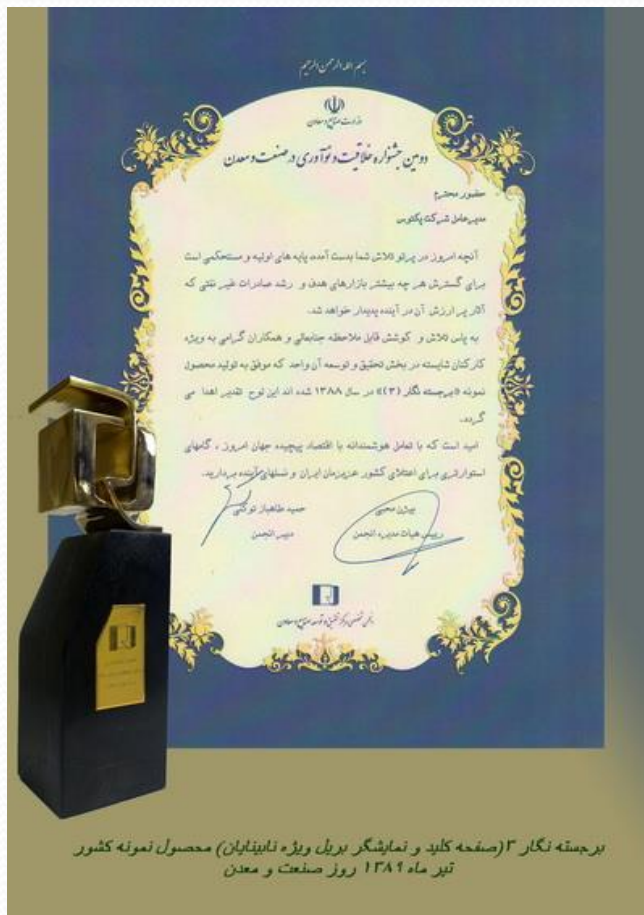 بسم الله الرحمن الرحیم
وزارت صنایع و معادن
دومین جشنواره خلاقیت و نوآوری در صنعت و معدن
حضور محترم
مدیرعامل شرکت پکتوس
آنچه امروز در پرتو تلاش شما بدست آمده، پایه های اولیه و مستحکمی است
برای گسترش هر چه بیشتر بازارهای هدف و رشد صادرات غیر نفتی که
آثار پر ارزش آن در آینده پدیدار خواهد شد.
به پاس تلاش و کوشش قابل ملاحظه جنابعالی و همکاران گرامی به ویژه
کارکنان شایسته در بخش تحقیق و توسعه آن واحد که موفق به تولید محصول
نمونه «برجسته نگار (۳)» در سال ۱۳۸۸ شده اند این لوح تقدیر اهدا می
گردد.
امید است که با تعامل هوشمندانه با اقتصاد پیچیده جهان امروز، گامهای
استوارتری برای اعتلای کشور عزیزمان ایران و نسلهای آینده بردارید.
بیژن محبی
رییس هیات مدیره انجمن
حمید طاهباز توکلی
دبیر انجمن
انجمن تخصصی مراکز تحقیق و توسعه صنایع و معادن
برجسته نگار ۳ (صفحه کلید و نمایشگر بریل ویژه نابینایان) محصول نمونه کشور
تیر ماه ۱۳۸۹ روز صنعت و معدن